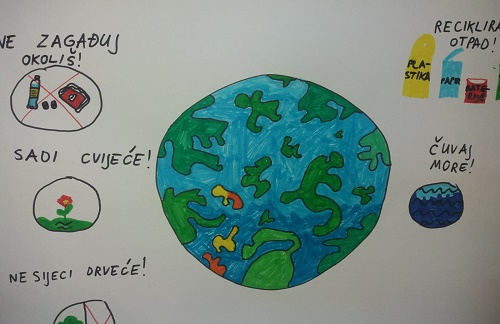 NE ZAGAĐUJ
OKOLIŠ!
SADI CVIJEĆE!
NE SIJECI DRVEĆE!
RECIKLIRA
OTPAD!
PLA-
STIKA
PAPIR
ČUVAJ
MORE!